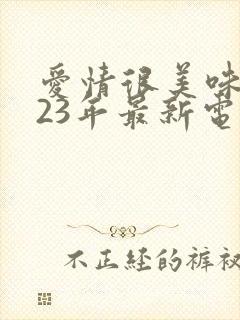 愛情很美味
23年最新電
不正經的褲衩